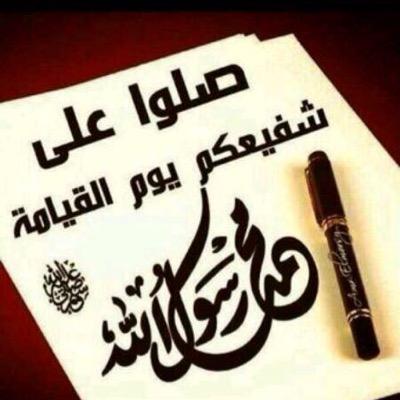 صلوا على
شفيعكم يوم القيامة
محمد رسول الله
صلى الله عليه وسلم